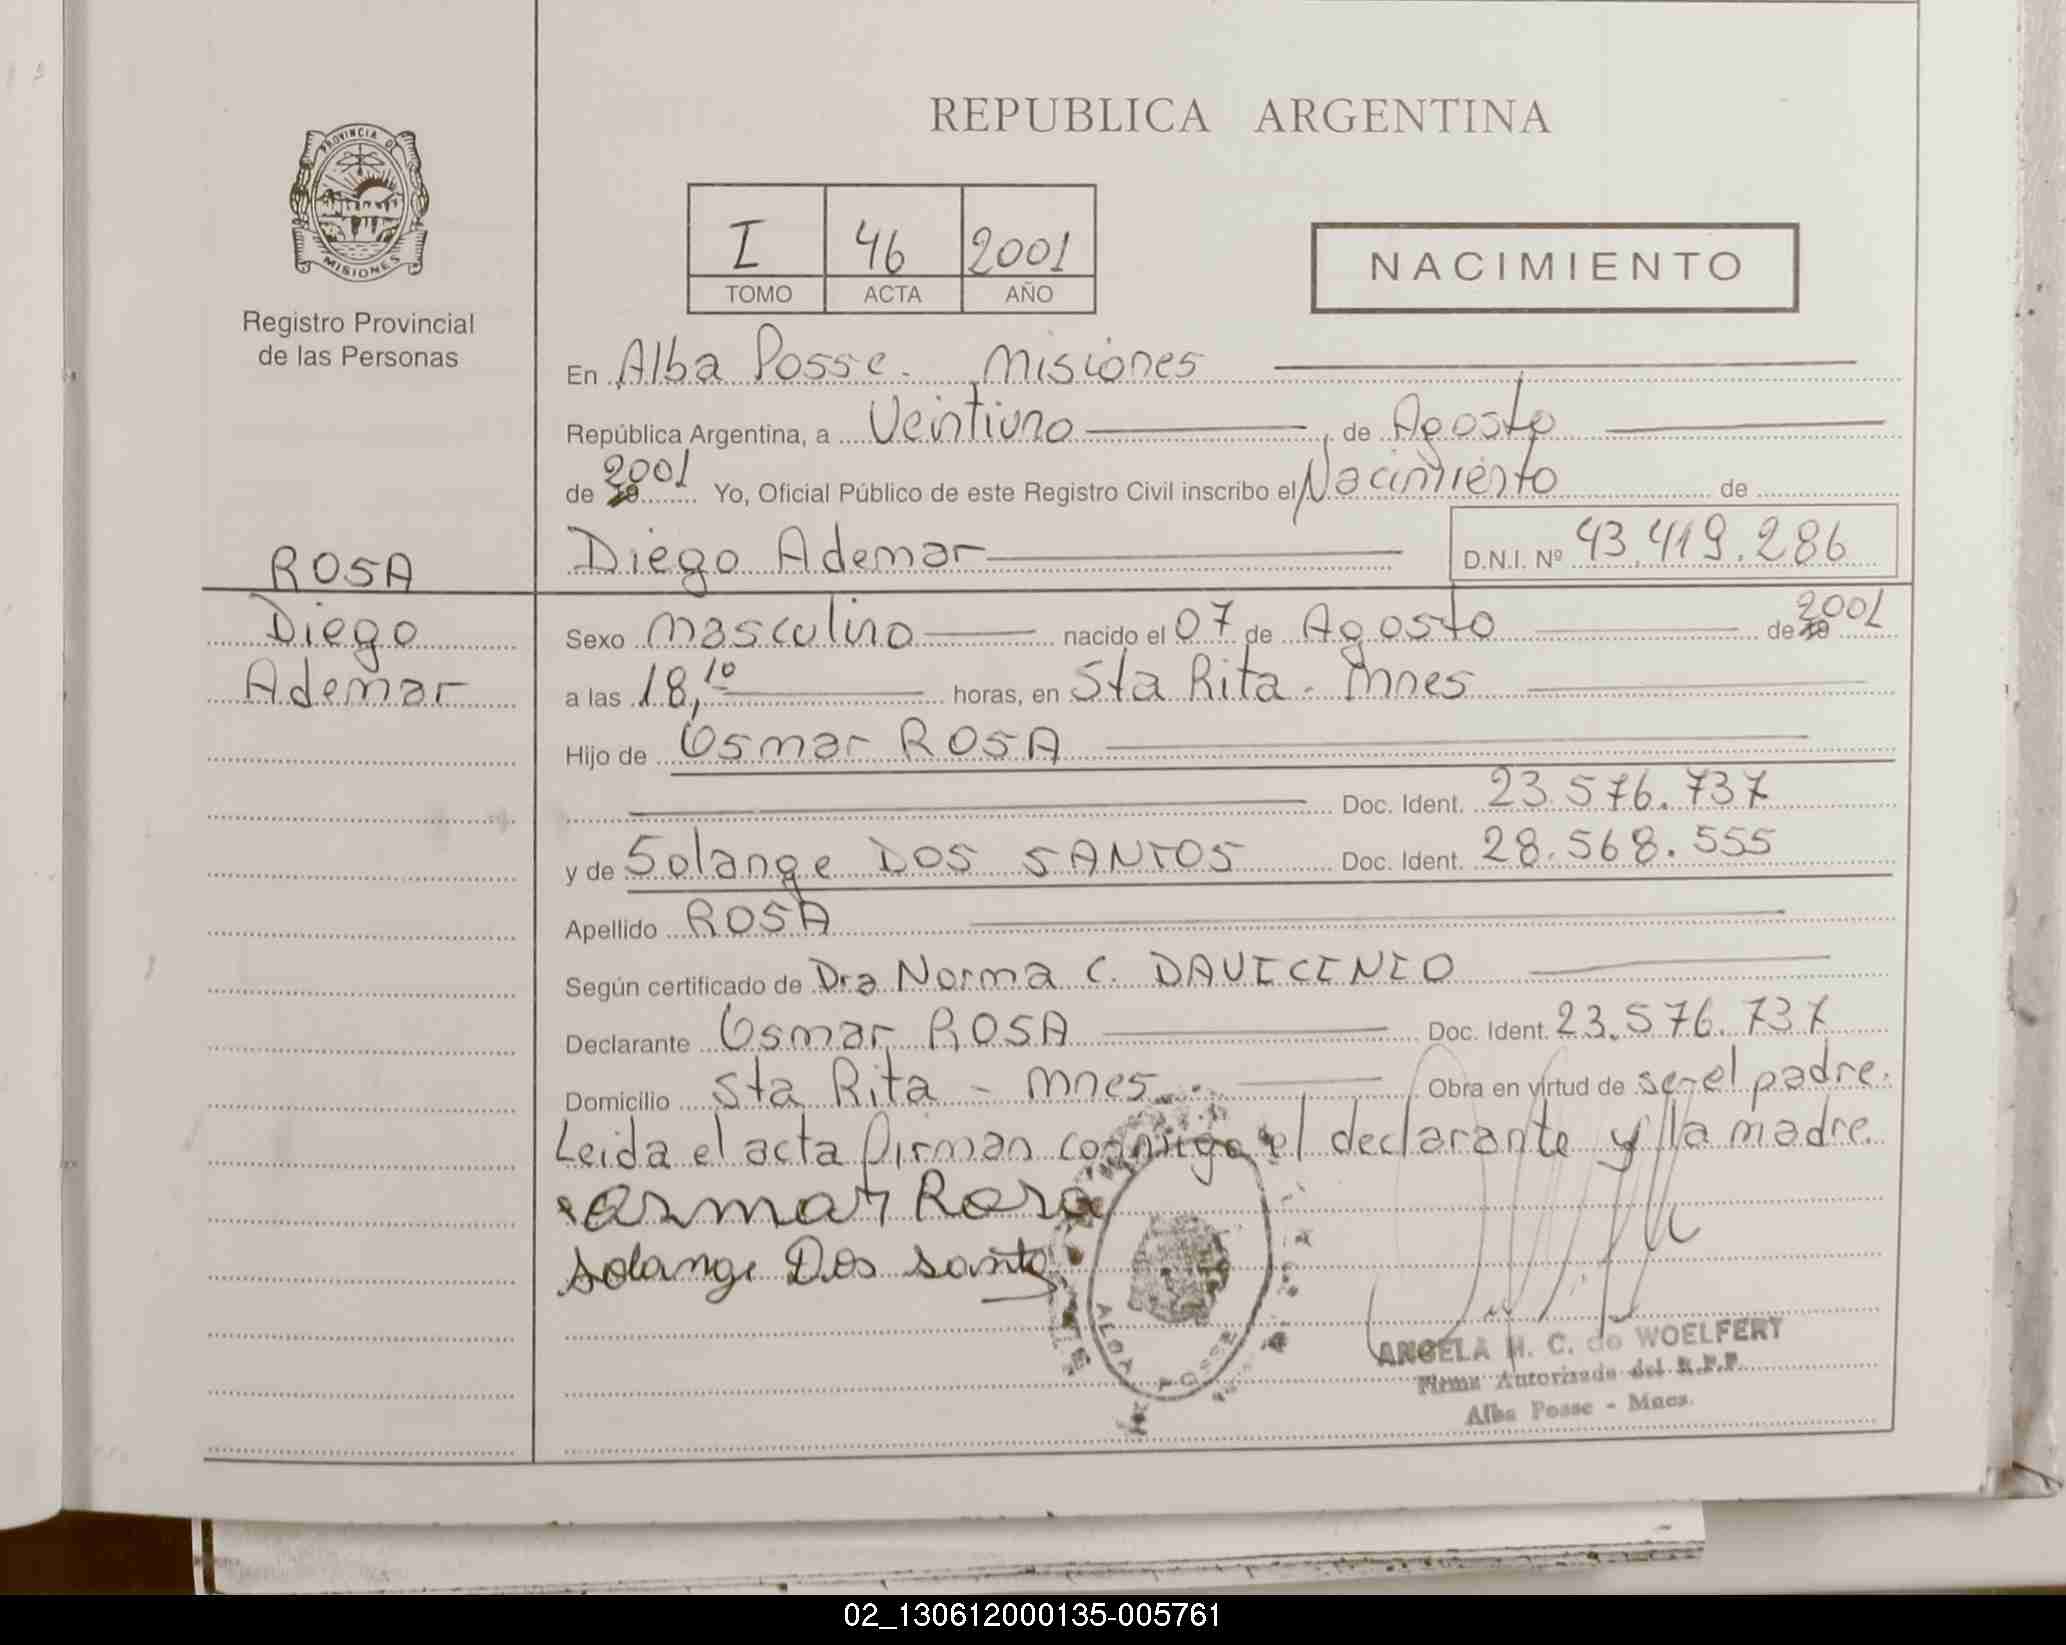 REPUBLICA ARGENTINA
PROVINCIA D
MISIONES
Registro Provincial
de las Personas
I 46 2001
TOMO ACTA AÑO
NACIMIENTO
En Alba Posse. Misiones
República Argentina, a Veintiuno, de Agosto
de 2001 Yo, Oficial Público de este Registro Civil inscribo el Nacimiento de
Diego Ademar D.N.I. Nº 43.419.286
ROSA
Diego
Ademar
Sexo masculino nacido el 07 de Agosto de 2001
a las 18,10 horas, en Sta Rita - Mnes
Hijo de Osmar ROSA
Doc. Ident. 23.576.737
y de Solange DOS SANTOS Doc. Ident. 28.568.555
Apellido ROSA
Según certificado de Dra Norma C. DAVICINIO
Declarante Osmar ROSA Doc. Ident. 23.576.737
Domicilio Sta Rita - Mnes. Obra en virtud de ser el padre.
Leida el acta firman conmigo el declarante y la madre
osmar Rosa
solange Dos santos
ALBA POSSE
ANGELA H. C. de WOELFERT
Firma Autorizada del R.P.P.
Alba Posse - Mnes.
02_130612000135-005761